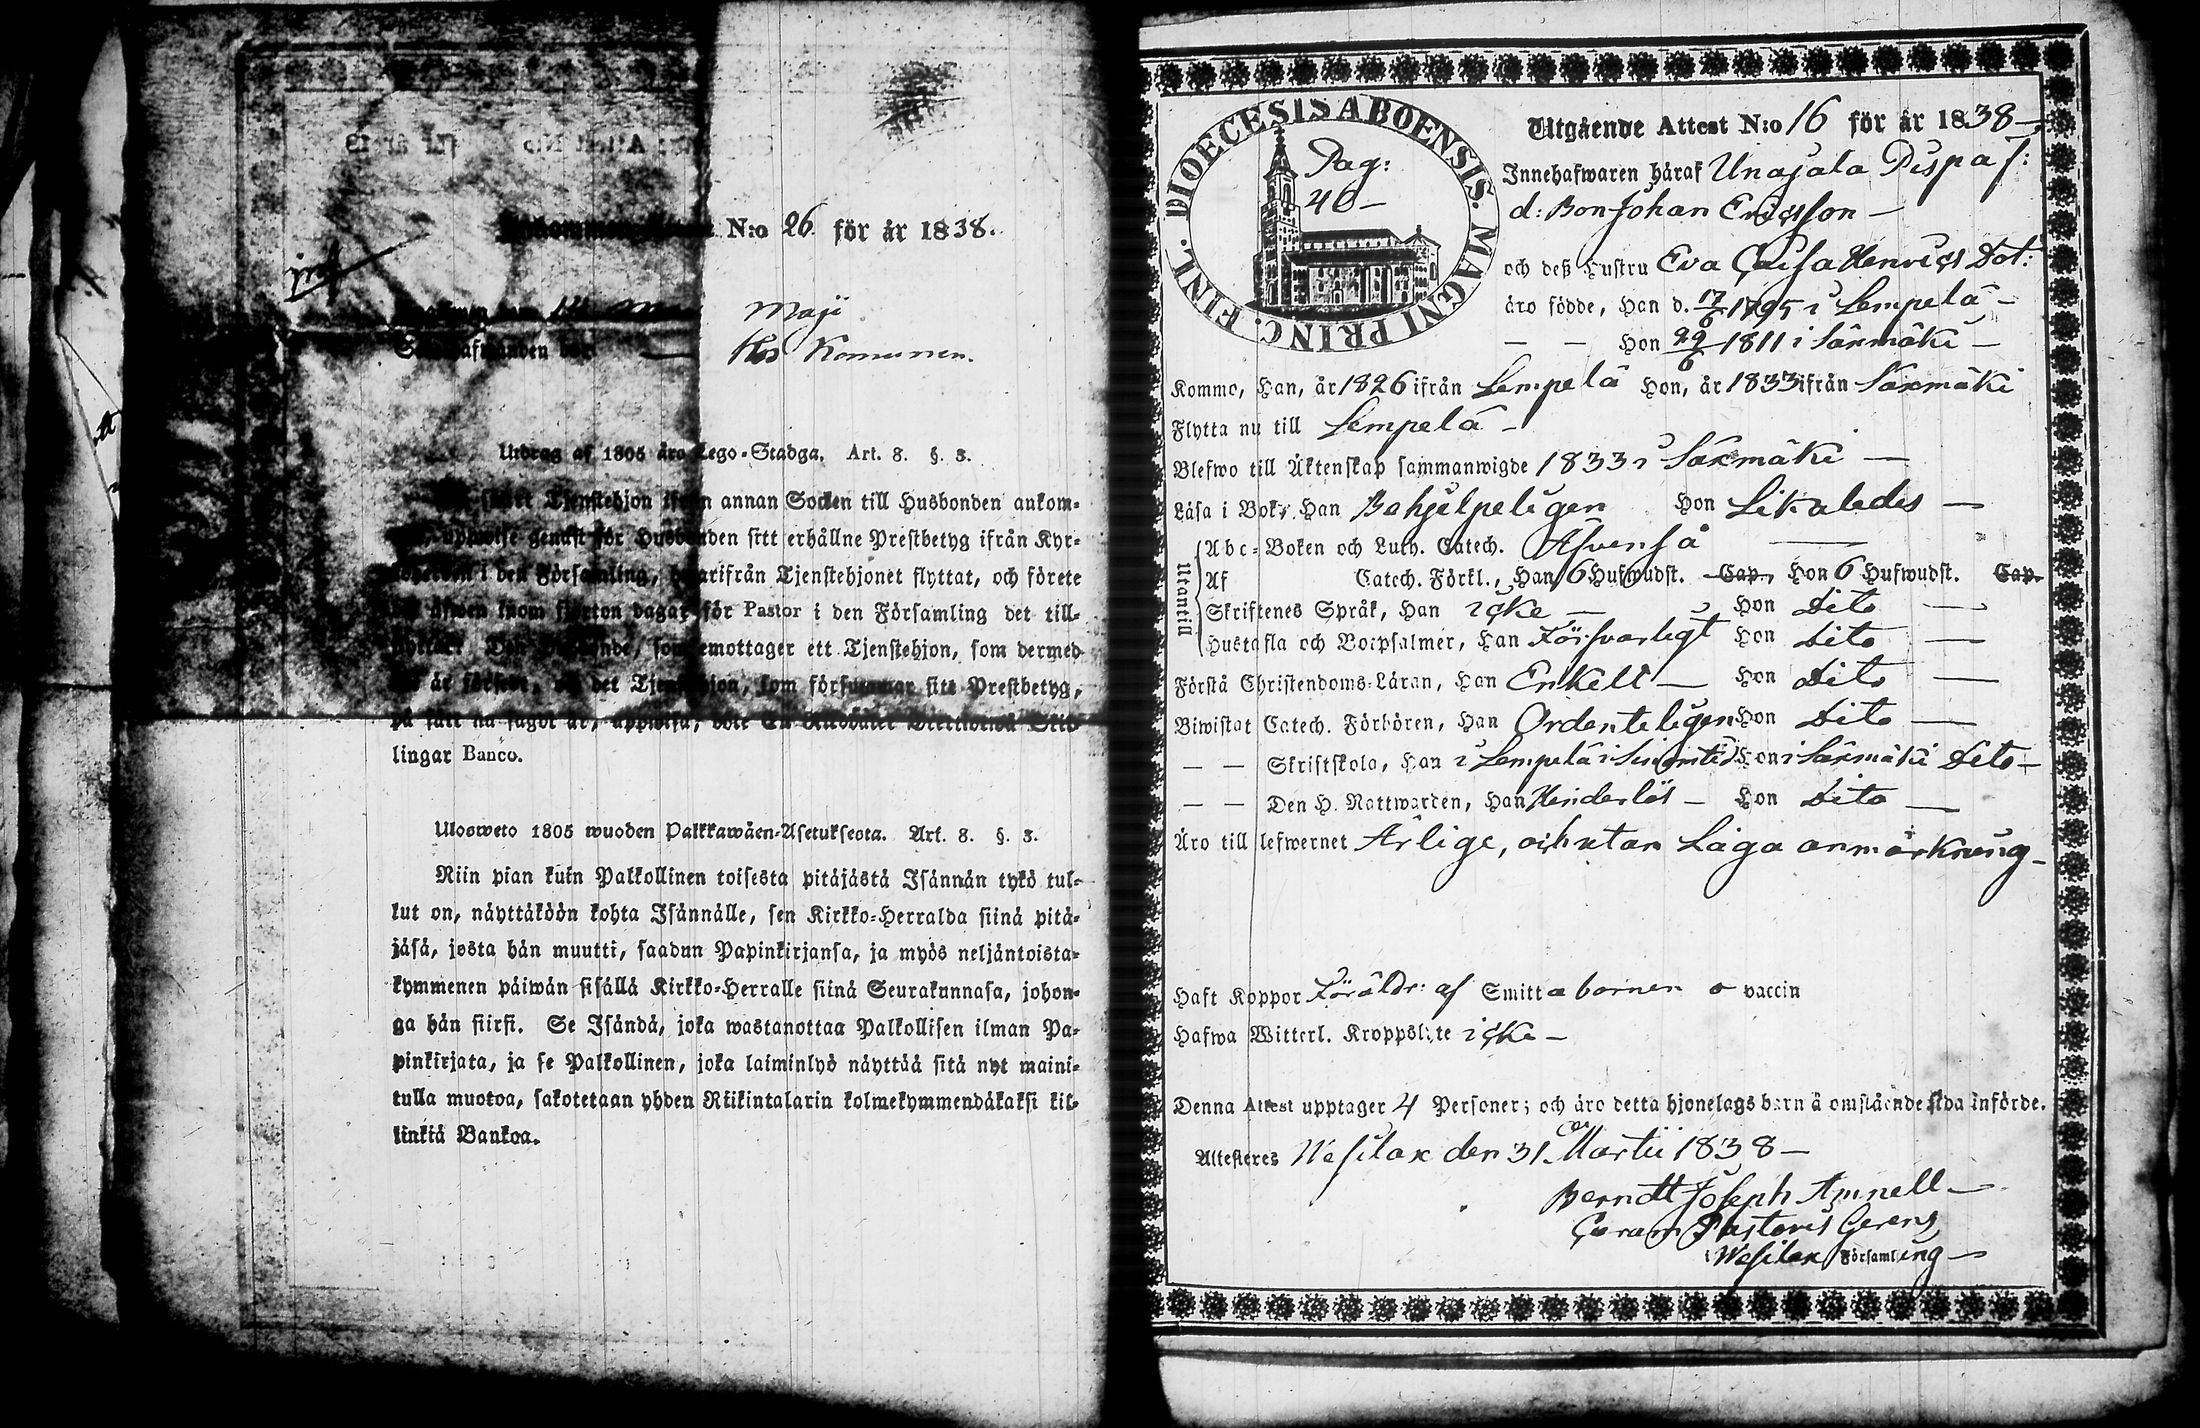 N:o 26 för år 1838.
Maji
Hos Komunen.
Utdrag af 1805 års Lego-Stadga. Art. 8. §. 3.
Tjenstehjon ifrån annan Socken till Husbonden ankom-
genast för Husbonden sitt erhållne Prestbetyg ifrån Kyr-
i den Församling, hwarifrån Tjenstehjonet flyttat, och förete
inom fjorton dagar för Pastor i den Församling det till-
emottager ett Tjenstehjon, som dermed
det Tjenstehjon, som försummar sitt Prestbetyg,
på sätt nu sagdt är, uppwisa,
lingar Banco.
Ulosweto 1805 wuoden Palkkawäen-Asetuksesta. Art. 8. §. 3.
Niin pian kuin Palkollinen toisesta pitäjästä Isännän tykö tul-
lut on, näyttäköön kohta Isännälle, sen Kirkko-Herralda siinä pitä-
jäsä, josta hän muutti, saadun Papinkirjansa, ja myös neljäntoista-
kymmenen päiwän sisällä Kirkko-Herralle siinä Seurakunnasa, johon-
ga hän siirsi. Se Isändä, joka wastanottaa Palkollisen ilman Pa-
pinkirjata, ja se Palkollinen, joka laiminlyö näyttää sitä nyt maini-
tulla muotoa, sakotetaan yhden Riikintalarin kolmekymmendäkaksi kil-
linkiä Bankoa.
DIOECESIS ABOENSIS. MAGNI PRINC. FINL.
Pag:
40 –
Utgående Attest N:o 16 för år 1838 –
Innehafwaren häraf Unajala Pispa f:
d: Bon Johan Ericsson –
och deß Hustru Eva Caisa Henrics Dot:
äro födde, Han d. 17/6 1795 i Lempelä –
– – Hon 29/6 1811 i Säxmäki –
Kommo, Han, år 1826 ifrån Lempelä Hon, år 1833 ifrån Säxmäki
Flytta nu till Lempelä –
Blefwo till Äktenskap sammanwigde 1833 i Säxmäki –
Läsa i Bok, Han Behjelpeligen Hon Likaledes –
Utantill
Abc-Boken och Luth. Catech. Äfvenså –
Af Catech. Förkl., Han 6 Hufwudst. Cap., Hon 6 Hufwudst. Cap.
Skriftenes Språk, Han icke – Hon Dito –
Hustafla och Botpsalmer, Han Försvarligt Hon Dito –
Förstå Christendoms-Läran, Han Enkelt – Hon Dito –
Biwistat Catech. Förhören, Han Ordenteligen Hon Dito –
– – Skriftskola, Han i Lempelä i sin tid Hon i Säxmäki Dito –
– – Den H. Nattwarden, Han Hinderlös – Hon Dito –
Äro till lefwernet Ärlige, och utan Laga anmärkning –
Haft Koppor Föräldr: af Smitta barnen o vaccin
Hafwa Witterl. Kroppslyte icke –
Denna Attest upptager 4 Personer; och äro detta hjonelags barn å omstående sida införde.
Attesteres Wesilax den 31 Martii 1838 –
Berndt Joseph Amnell –
Coram Pastoris Gerens
i Wesilax Församling –